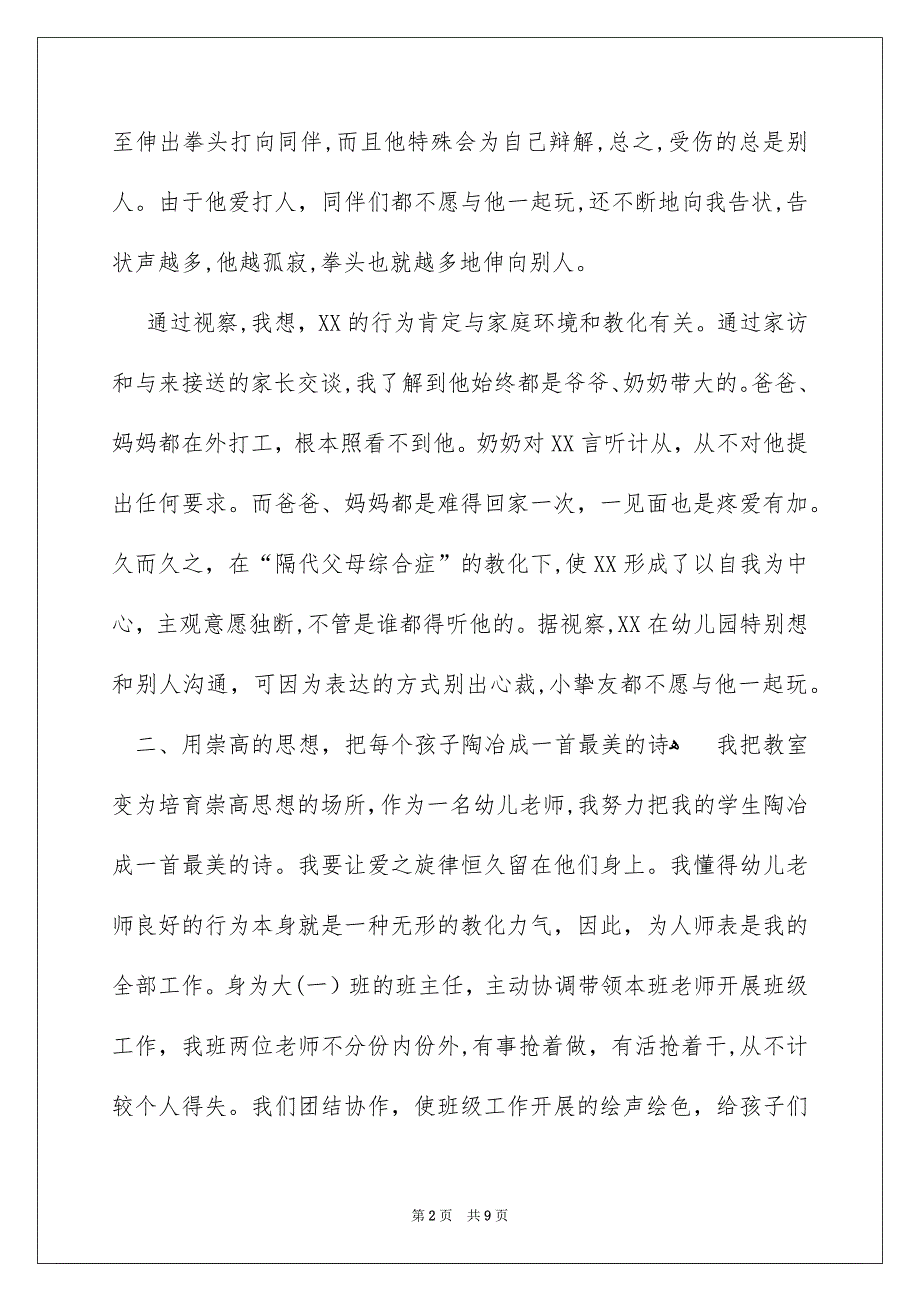 至伸出拳头打向同伴,而且他特殊会为自己辩解,总之,受伤的总是别
人。由于他爱打人，同伴们都不愿与他一起玩,还不断地向我告状,告
状声越多,他越孤寂,拳头也就越多地伸向别人。
通过视察,我想，XX 的行为肯定与家庭环境和教化有关。通过家访
和与来接送的家长交谈,我了解到他始终都是爷爷、奶奶带大的。爸爸、
妈妈都在外打工，根本照看不到他。奶奶对 XX 言听计从，从不对他提
出任何要求。而爸爸、妈妈都是难得回家一次，一见面也是疼爱有加。
久而久之，在“隔代父母综合症”的教化下,使 XX 形成了以自我为中
心，主观意愿独断,不管是谁都得听他的。据视察,XX 在幼儿园特别想
和别人沟通，可因为表达的方式别出心裁,小挚友都不愿与他一起玩。
二、用崇高的思想，把每个孩子陶冶成一首最美的诗ﻫ 我把教室
变为培育崇高思想的场所,作为一名幼儿老师,我努力把我的学生陶冶
成一首最美的诗。我要让爱之旋律恒久留在他们身上。我懂得幼儿老
师良好的行为本身就是一种无形的教化力气，因此，为人师表是我的
全部工作。身为大(一）班的班主任，主动协调带领本班老师开展班级
工作，我班两位老师不分份内份外,有事抢着做，有活抢着干,从不计
较个人得失。我们团结协作，使班级工作开展的绘声绘色，给孩子们
第 2 页 共 9 页